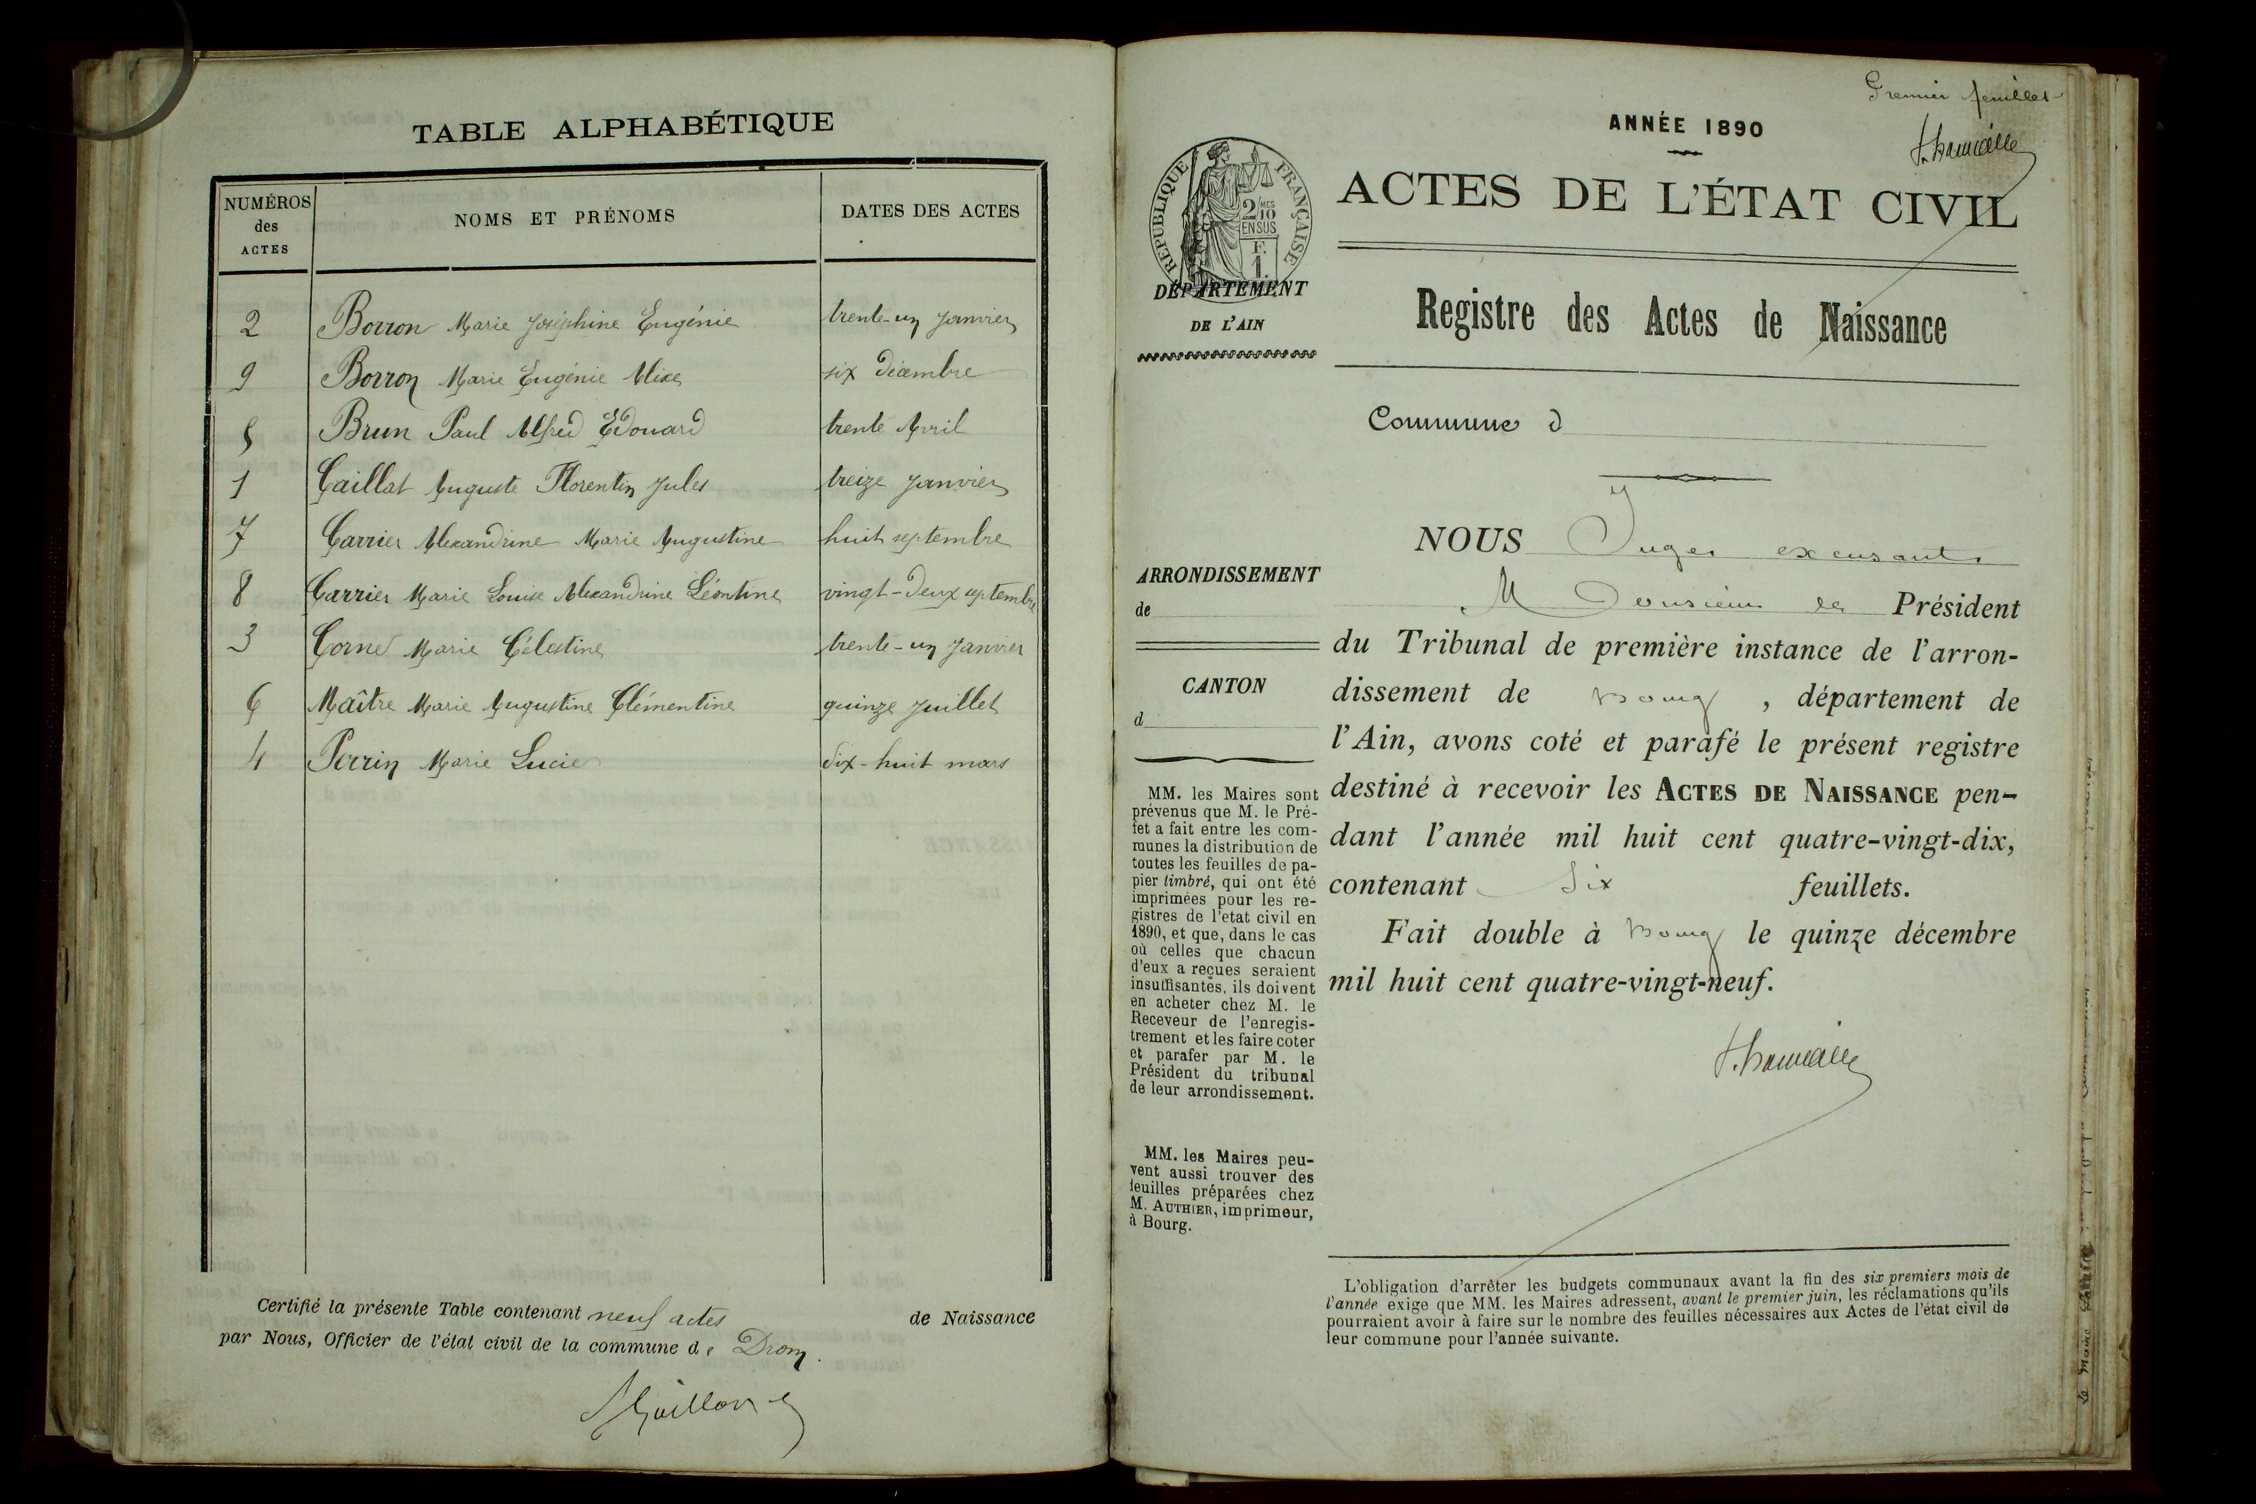 TABLE ALPHABÉTIQUE
NUMÉROS des ACTES
NOMS ET PRÉNOMS
DATES DES ACTES
2 Borron Marie Joséphine Eugénie trente-un Janvier
9 Borron Marie Eugénie Alixe six Décembre
5 Brun Paul Alfred Edouard trente Avril
1 Caillat Auguste Florentin Jules treize Janvier
7 Carrier Alexandrine Marie Augustine huit septembre
8 Carrier Marie Louise Alexandrine Léontine vingt-deux septembre
3 Corne Marie Célestine trente-un Janvier
6 Maître Marie Augustine Clémentine quinze Juillet
4 Perrin Marie Lucie dix-huit mars
Certifié la présente Table contenant neuf actes de Naissance
par Nous, Officier de l'état civil de la commune de Drom.
Premier feuillet
ANNÉE 1890
RÉPUBLIQUE FRANÇAISE
2 MES 10
EN SUS
F.
1.
ACTES DE L'ÉTAT CIVIL
DÉPARTEMENT
DE L'AIN
Registre des Actes de Naissance
Commune d
ARRONDISSEMENT
de
CANTON
d
MM. les Maires sont
prévenus que M. le Pré-
fet a fait entre les com-
munes la distribution de
toutes les feuilles de pa-
pier timbré, qui ont été
imprimées pour les re-
gistres de l'etat civil en
1890, et que, dans le cas
où celles que chacun
d'eux a reçues seraient
insuffisantes, ils doivent
en acheter chez M. le
Receveur de l'enregis-
trement et les faire coter
et parafer par M. le
Président du tribunal
de leur arrondissement.
MM. les Maires peu-
vent aussi trouver des
feuilles préparées chez
M. AUTHIER, imprimeur,
à Bourg.
NOUS Juge
Président
du Tribunal de première instance de l'arron-
dissement de Bourg, département de
l'Ain, avons coté et parafé le présent registre
destiné à recevoir les ACTES DE NAISSANCE pen-
dant l'année mil huit cent quatre-vingt-dix,
contenant Six feuillets.
Fait double à Bourg le quinze décembre
mil huit cent quatre-vingt-neuf.
L'obligation d'arrêter les budgets communaux avant la fin des six premiers mois de
l'année exige que MM. les Maires adressent, avant le premier juin, les réclamations qu'ils
pourraient avoir à faire sur le nombre des feuilles nécessaires aux Actes de l'état civil de
leur commune pour l'année suivante.